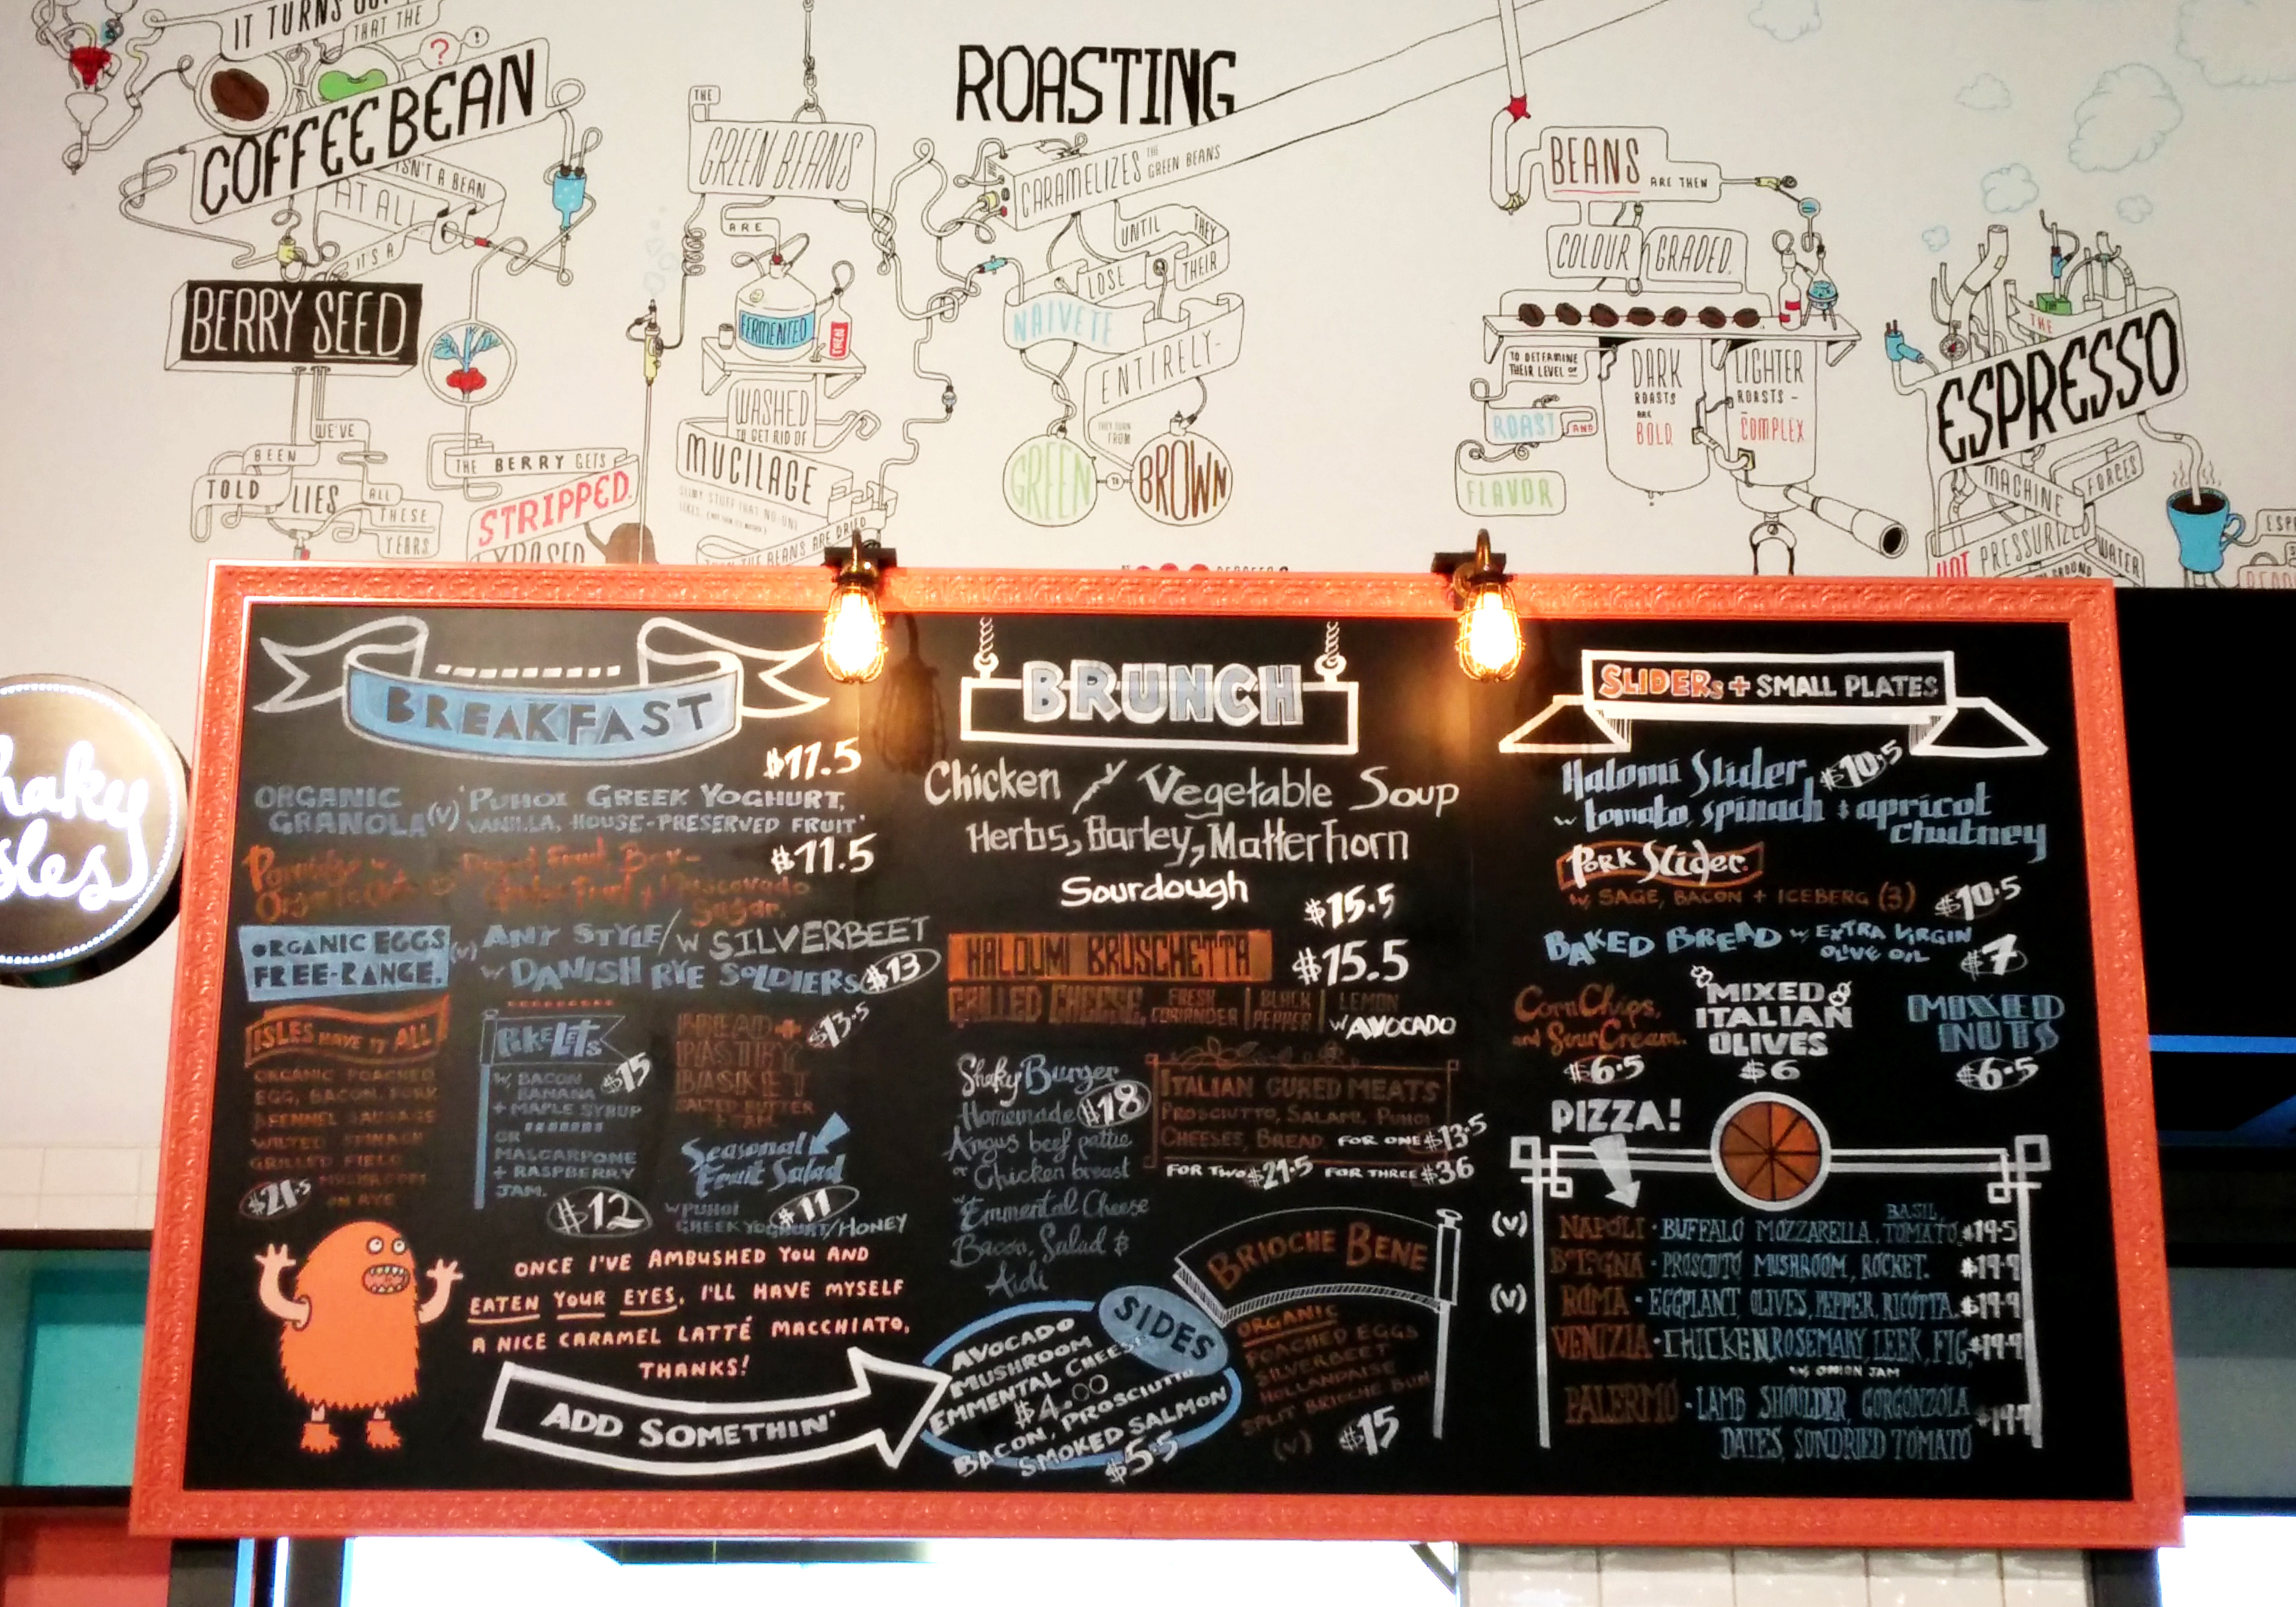 IT TURNS OUT
THAT THE
COFFEE BEAN
ISN'T A BEAN
AT ALL
IT'S A
BERRY SEED
WE'VE
BEEN
TOLD LIES ALL
THESE
YEARS
THE BERRY GETS
STRIPPED.
THE
GREEN BEANS
ARE
FERMENTED
WASHED
TO GET RID OF
MUCILAGE
THE BEANS ARE DRIED
ROASTING
CARAMELIZES THE GREEN BEANS
UNTIL THEY
LOSE THEIR
NAIVETE
ENTIRELY-
THEY TURN
FROM
GREEN TO BROWN
BEANS ARE THEN
COLOUR GRADED.
TO DETERMINE
THEIR LEVEL OF
ROAST AND
FLAVOR
DARK
ROASTS
ARE
BOLD
LIGHTER
ROASTS -
COMPLEX
THE
ESPRESSO
MACHINE FORCES
HOT PRESSURIZED WATER
GROUND
haky
sles
BREAKFAST
$11.5
ORGANIC GRANOLA (V) 'PUHOI GREEK YOGHURT,
VANILLA, HOUSE-PRESERVED FRUIT'
$11.5
Sugar.
ORGANIC EGGS
FREE-RANGE.
(V) ANY STYLE/W SILVERBEET
W DANISH RYE SOLDIERS $13
ISLES HAVE IT ALL
ORGANIC POACHED
EGG, BACON, PORK
& FENNEL SAUSAGE
WILTED SPINACH
GRILLED FIELD
MUSHROOMS
ON RYE
$21.5
PIKELETS
W, BACON
BANANA
+ MAPLE SYRUP
$15
OR
MASCARPONE
+ RASPBERRY
JAM.
$12
BREAD +
PASTRY
BASKET
$13.5
SALTED BUTTER
+ JAM
Seasonal
Fruit Salad
W PUHOI $11
GREEK YOGHURT/HONEY
ONCE I'VE AMBUSHED YOU AND
EATEN YOUR EYES, I'LL HAVE MYSELF
A NICE CARAMEL LATTÉ MACCHIATO,
THANKS!
ADD SOMETHIN'
BRUNCH
Chicken / Vegetable Soup
Herbs, Barley, Matterhorn
Sourdough
$15.5
HALOUMI BRUSCHETTA $15.5
GRILLED CHEESE, FRESH CORIANDER | BLACK PEPPER | LEMON
W AVOCADO
Shaky Burger
Homemade $18
Angus beef pattie
or Chicken breast
w Emmental Cheese
Bacon, Salad &
Aioli
ITALIAN CURED MEATS
PROSCIUTTO, SALAMI, PUHOI
CHEESES, BREAD FOR ONE $13.5
FOR TWO $21.5 FOR THREE $36
SIDES
AVOCADO
MUSHROOM
EMMENTAL CHEESE
$4.00
BACON, PROSCIUTTO
SMOKED SALMON
$5.5
BRIOCHE BENE
ORGANIC
POACHED EGGS
SILVERBEET
HOLLANDAISE
SPLIT BRIOCHE BUN
(V) $15
SLIDERS + SMALL PLATES
Halomi Slider $10.5
w tomato, spinach & apricot
chutney
PORK Slider.
W, SAGE, BACON + ICEBERG (3) $10.5
BAKED BREAD W EXTRA VIRGIN
OLIVE OIL $7
Corn Chips,
and Sour Cream.
$6.5
MIXED
ITALIAN
OLIVES
$6
MIXED
NUTS
$6.5
PIZZA!
(V) NAPOLI · BUFFALO MOZZARELLA, BASIL, TOMATO. $19.5
BOLOGNA · PROSCIUTO MUSHROOM, ROCKET. $19.9
(V) ROMA · EGGPLANT, OLIVES, PEPPER, RICOTTA. $19.9
VENIZIA · CHICKEN, ROSEMARY, LEEK, FIG, $19.9
W ONION JAM
PALERMO · LAMB SHOULDER, GORGONZOLA $19.9
DATES, SUNDRIED TOMATO